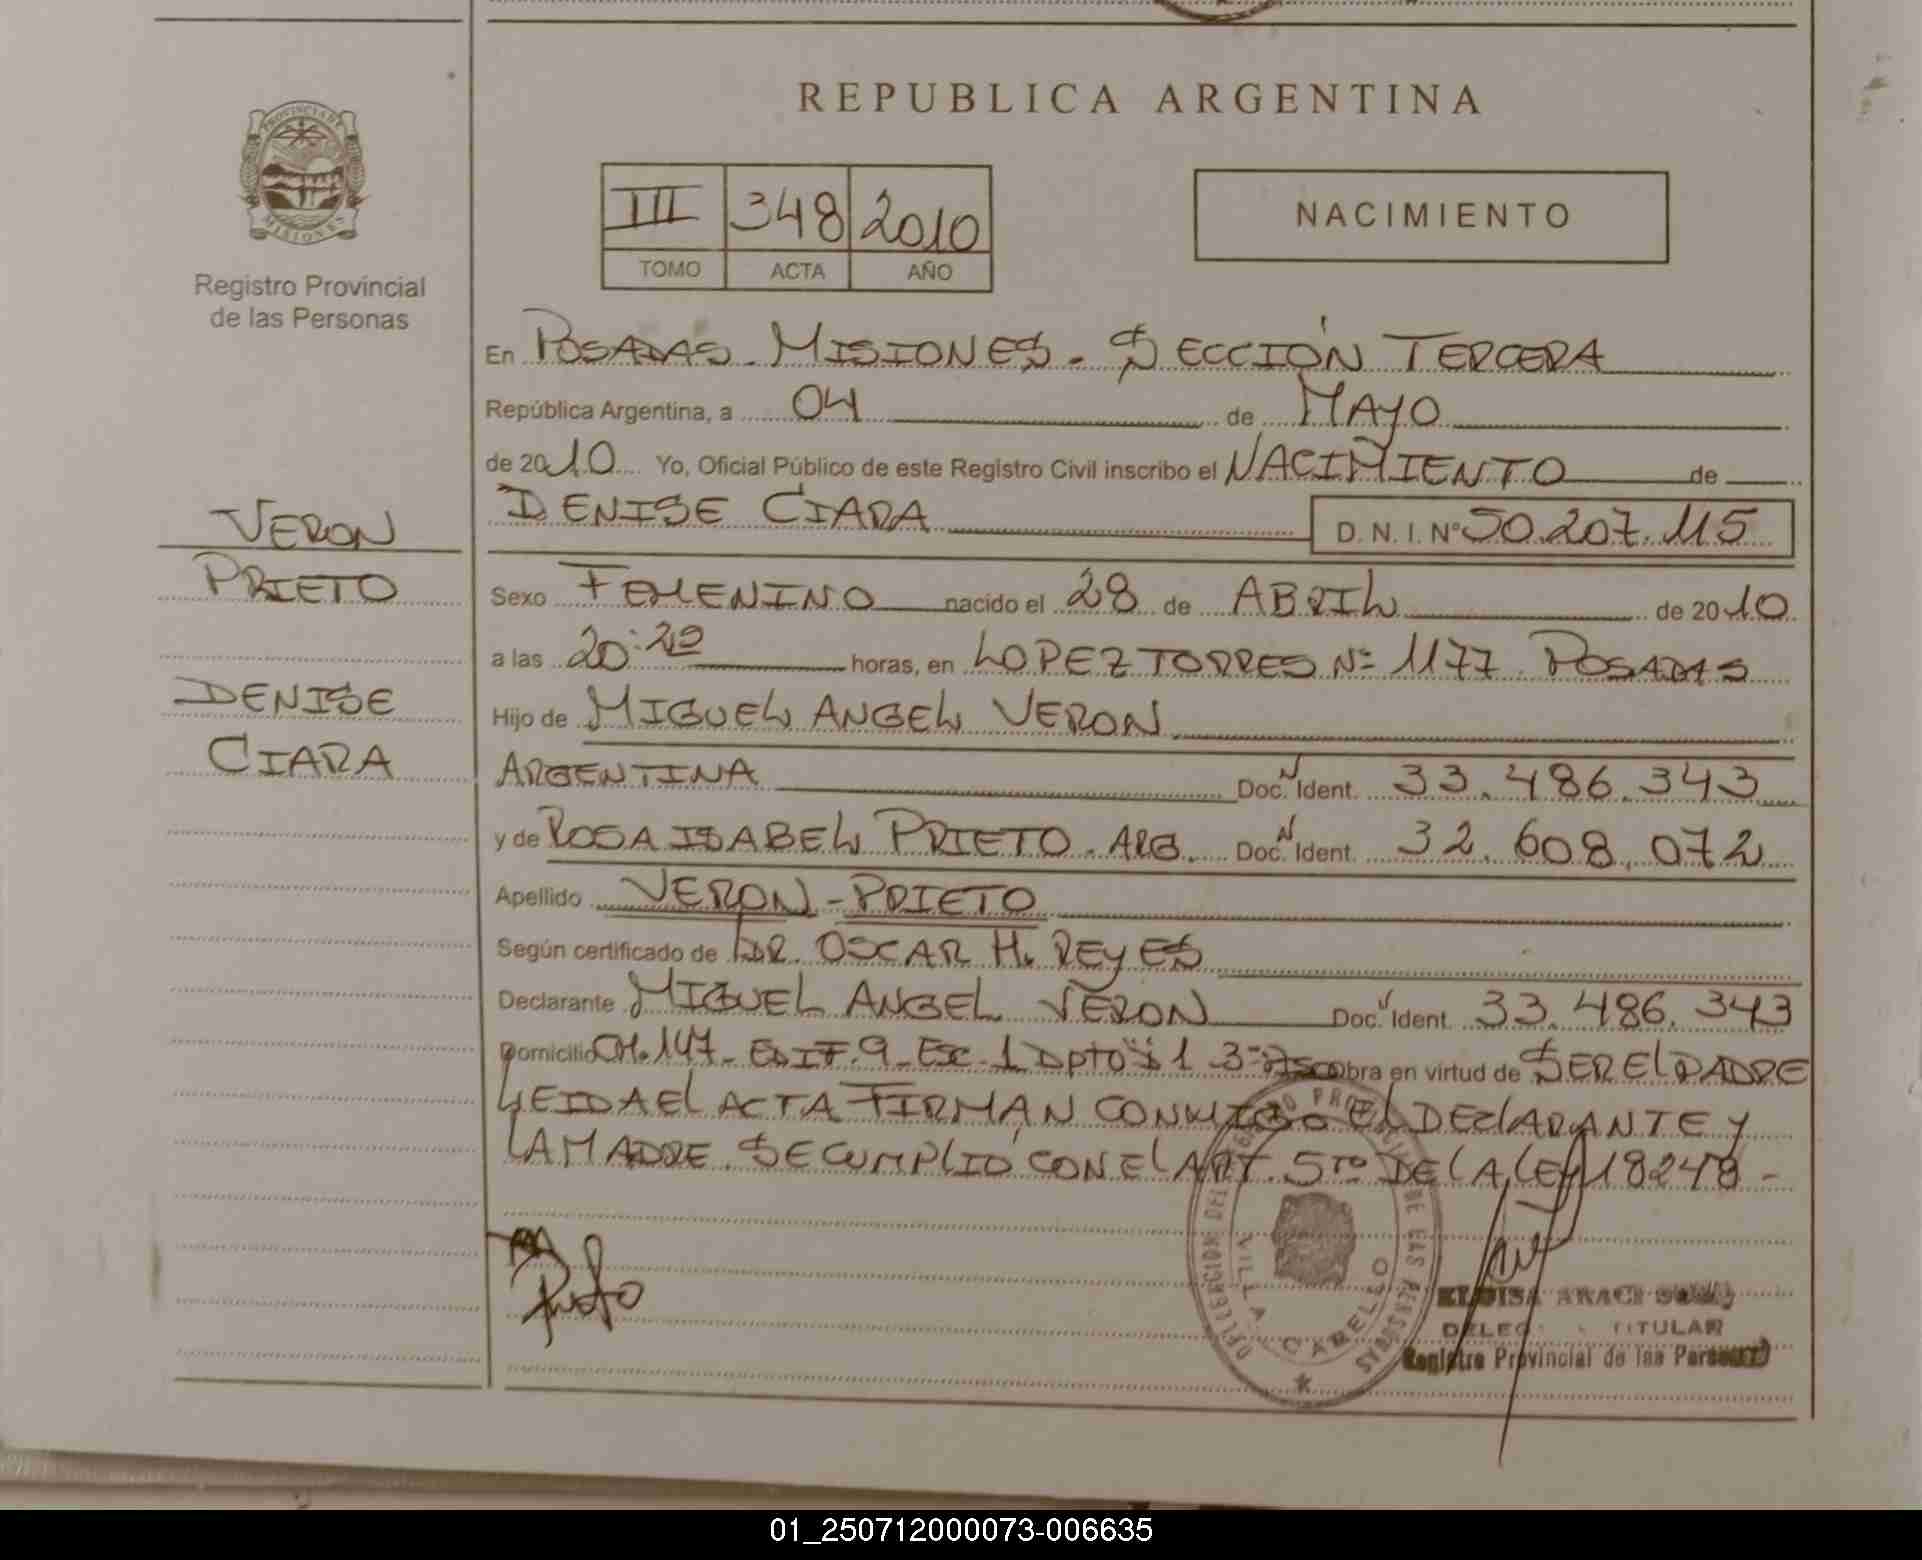 REPUBLICA ARGENTINA
PROVINCIA DE
MISIONES
Registro Provincial
de las Personas
III 348 2010
TOMO ACTA AÑO
NACIMIENTO
En POSADAS - MISIONES - SECCIÓN TERCERA
República Argentina, a 04 de MAYO
de 2010 Yo, Oficial Público de este Registro Civil inscribo el NACIMIENTO de
DENISE CIARA D. N. I. Nº 50.207.115
VERON
PRIETO
DENISE
CIARA
Sexo FEMENINO nacido el 28 de ABRIL de 2010
a las horas, en LOPEZ TORRES Nº 1177 POSADAS
Hijo de MIGUEL ANGEL VERON
ARGENTINA Doc. Ident. 33.486.343
y de ROSA ISABEL PRIETO. ARG. Doc. Ident. 32.608.072
Apellido VERON - PRIETO
Según certificado de DR. OSCAR H. REYES
Declarante MIGUEL ANGEL VERON Doc. Ident. 33.486.343
Domicilio CH. 147 - EDIF. 9 - ESC. 1 Dpto obra en virtud de SER EL PADRE
LEIDA El ACTA FIRMAN CONMIGO EL DEClARANTE y
LA MADRE. SE CUMPLIÓ CON El ART. 5to DE LA LEY 18248 -
Prieto
DELEGACION DEL REGISTRO PROVINCIAL DE LAS PERSONAS
VILLA CABELLO
ELOISA ARACI
TITULAR
Registro Provincial de las Personas
01_250712000073-006635